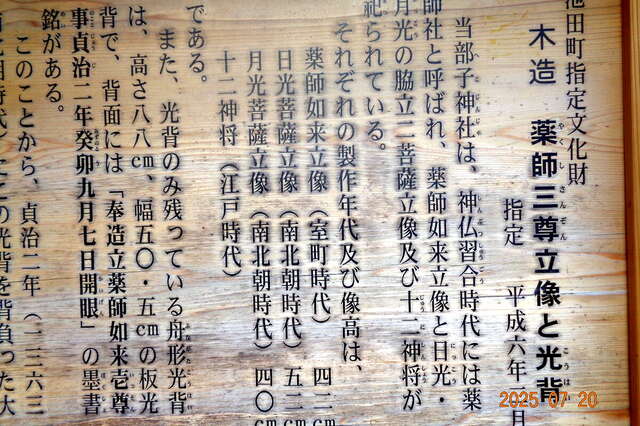 池田町指定文化財
木造 薬師三尊立像と光背
指定 平成六年二月
当部子神社は、神仏習合時代には薬
師社と呼ばれ、薬師如来立像と日光・
月光の脇立二菩薩立像及び十二神将が
祀られている。
それぞれの製作年代及び像高は、
薬師如来立像(室町時代) 四二cm
日光菩薩立像(南北朝時代)五二cm
月光菩薩立像(南北朝時代)四〇cm
十二神将(江戸時代)
である。
また、光背のみ残っている舟形光背
は、高さ八八cm、幅五〇・五cmの板光
背で、背面には「奉造立薬師如来壱尊
事貞治二年癸卯九月七日開眼」の墨書
銘がある。
このことから、貞治二年(一三六三
の光背を背負った大
2025-07-20